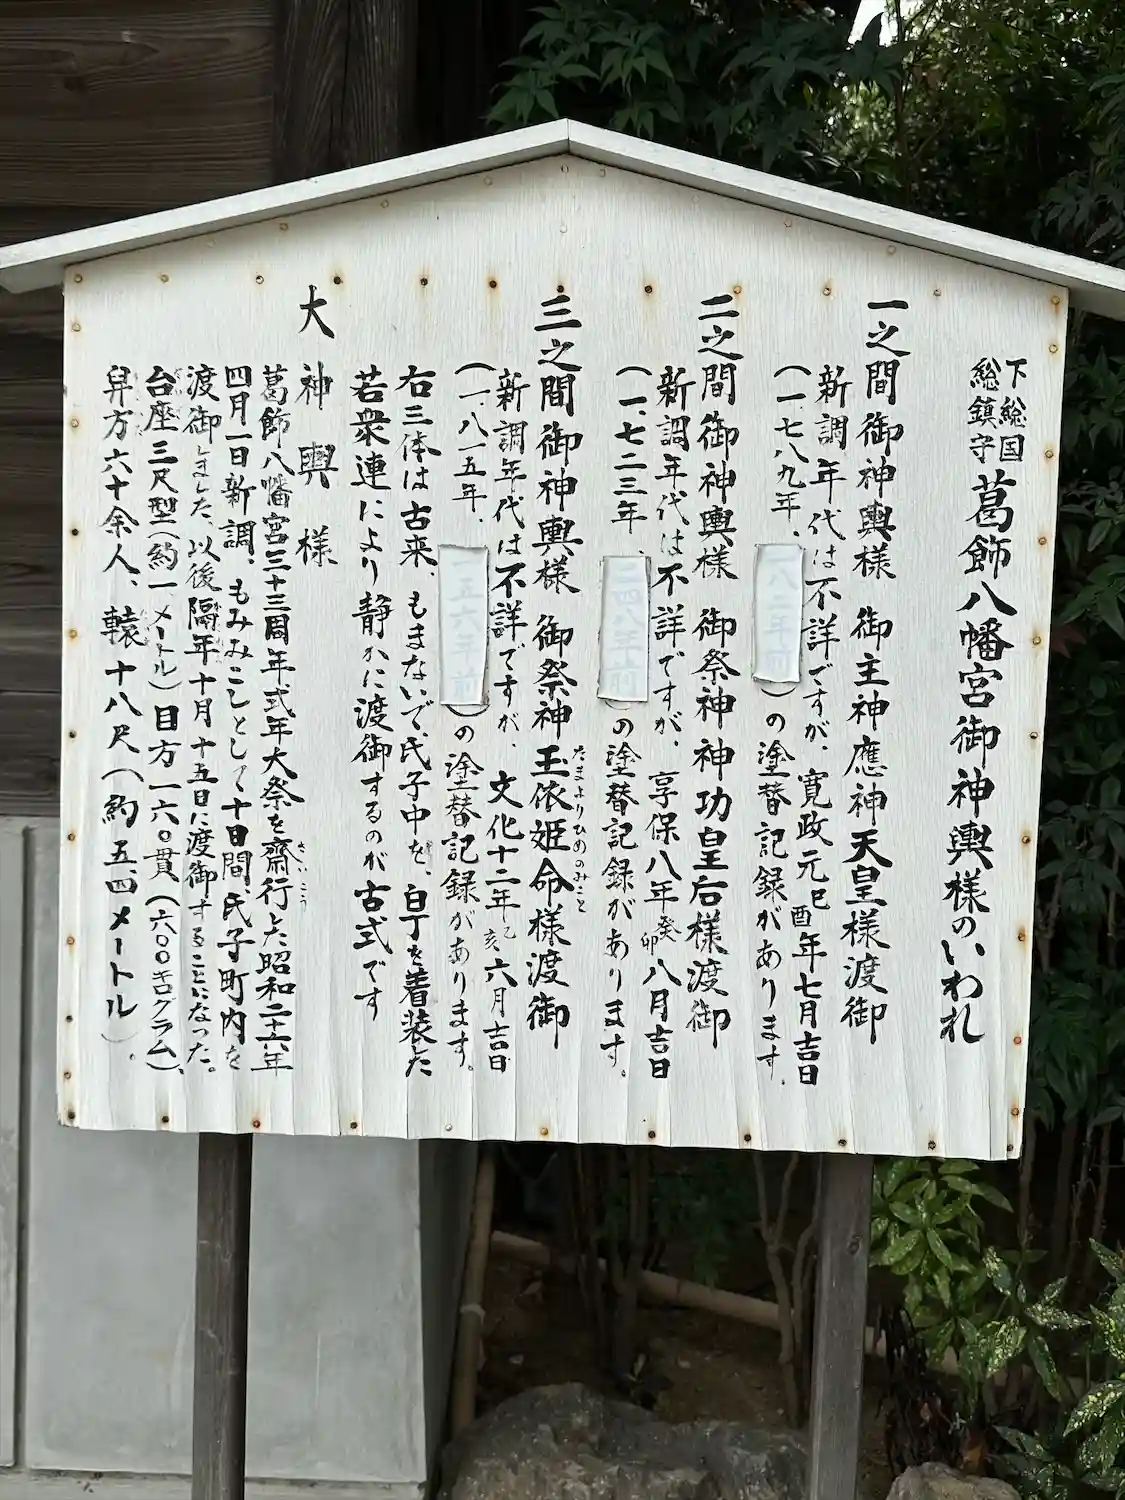 下総国
総鎮守
葛飾八幡宮御神輿様のいわれ
一之間御神輿様 御主神應神天皇様渡御
新調年代は不詳ですが、寛政元己酉年七月吉日
(一、七八九年、一八二年前)の塗替記録があります。
二之間御神輿様 御祭神 神功皇后様渡御
新調年代は不詳ですが、享保八年癸卯八月吉日
(一、七二三年、二四八年前)の塗替記録があります。
三之間御神輿様 御祭神 玉依姫命様渡御
たまよりひめのみこと
新調年代は不詳ですが、文化十二年乙亥六月吉日
(一、八一五年、一五六年前)の塗替記録があります。
右三体は古来、もまないで、氏子中を、白丁を着装した
若衆連により静かに渡御するのが古式です
大神輿様
葛飾八幡宮三十三周年式年大祭を齋行した昭和二十六年
さいこう
四月一日新調、もみみこしとして十日間、氏子町内を
渡御しました、以後隔年十月十五日に渡御することになった。
台座三尺型(約一、メートル)目方一六〇貫(六〇〇キログラム)、
舁方六十余人、轅十八尺(約五、四メートル)。